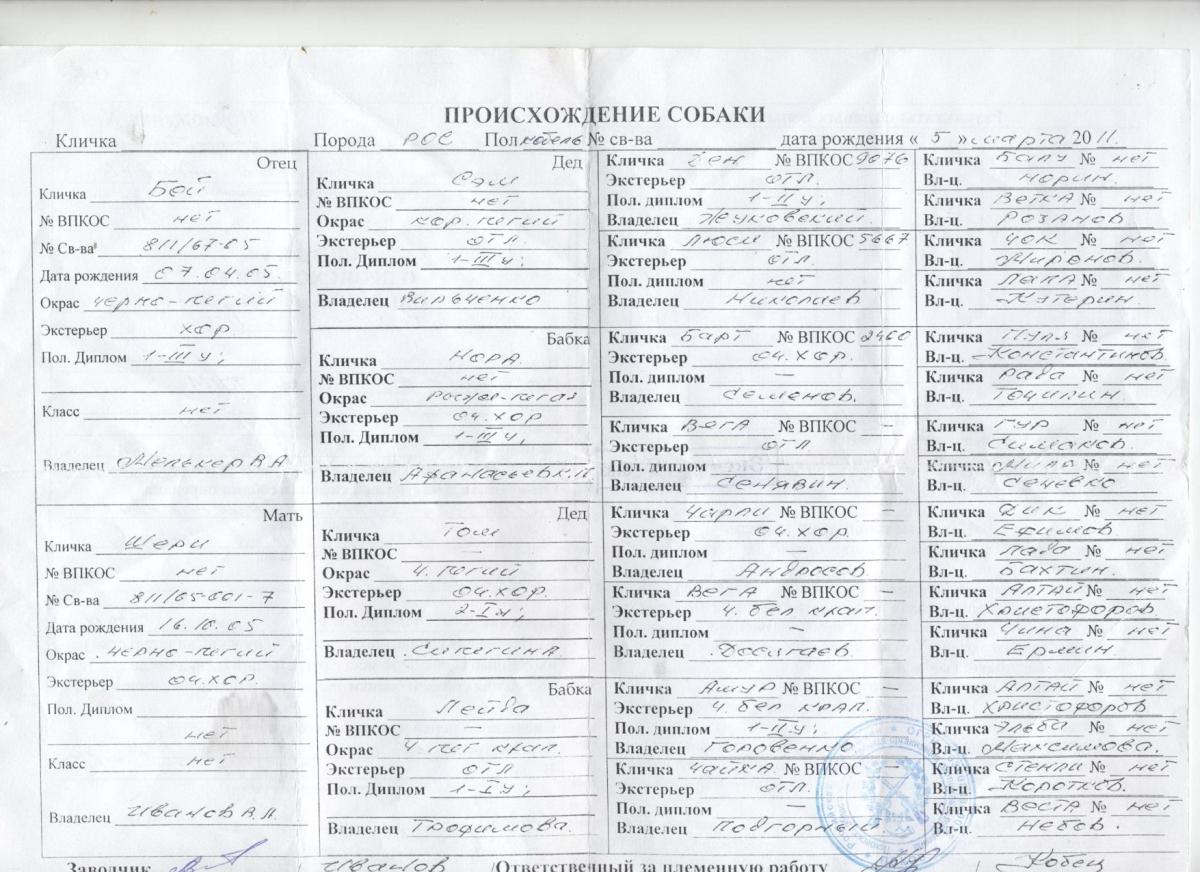 ПРОИСХОЖДЕНИЕ СОБАКИ
Кличка Порода РОС Пол кобель № св-ва дата рождения « 5 » марта 20 11.
Отец
Кличка Бой
№ ВПКОС нет
№ Св-ва 811/67-05
Дата рождения 07.04.05.
Окрас черно-пегий
Экстерьер хор
Пол. Диплом 1-III у;
Класс нет
Владелец Мелькер В А
Дед
Кличка Сэм
№ ВПКОС нет
Окрас кор. пегий
Экстерьер отл.
Пол. Диплом 1-III у;
Владелец Вильченко
Кличка Бен № ВПКОС 9076
Экстерьер отл.
Пол. диплом 1-II у;
Владелец Жуковский.
Кличка Люси № ВПКОС 5667
Экстерьер отл.
Пол. диплом нет
Владелец Николаев
Кличка Балу № нет
Вл-ц. Норин.
Кличка Ветка № нет
Вл-ц. Розанов
Кличка Чок № нет
Вл-ц. Миронов.
Кличка Лала № нет
Вл-ц.
Бабка
Кличка Нора.
№ ВПКОС нет
Окрас
Экстерьер оч.хор
Пол. Диплом 1-III у,
Владелец Афанасьев
Кличка Барт № ВПКОС 2460
Экстерьер оч. хор.
Пол. диплом —
Владелец Семенов.
Кличка Вега № ВПКОС —
Экстерьер отл
Пол. диплом
Владелец Сенявин.
Кличка Пуля № нет
Вл-ц. Константинов.
Кличка Рада № нет
Вл-ц. Точилин.
Кличка Гур № нет
Вл-ц. Симаков.
Кличка Мила № нет
Вл-ц. Сечевко
Мать
Кличка Шери
№ ВПКОС нет
№ Св-ва 811/05-001-7
Дата рождения 16.10.05
Окрас черно-пегий
Экстерьер оч.хор.
Пол. Диплом
нет
Класс нет
Владелец Иванов А.Л.
Дед
Кличка Том
№ ВПКОС —
Окрас ч. пегий
Экстерьер оч.хор.
Пол. Диплом 2-I у;
Владелец Сипягина.
Кличка Чарли № ВПКОС —
Экстерьер оч.хор.
Пол. диплом —
Владелец Андросов
Кличка Вега № ВПКОС —
Экстерьер ч. бел крап.
Пол. диплом —
Владелец Досигаев.
Кличка Дик № нет
Вл-ц. Ефимов
Кличка Лада № нет
Вл-ц. Бахтин.
Кличка Алтай № нет
Вл-ц. Христофоров.
Кличка Чина № нет
Вл-ц. Ермин.
Бабка
Кличка Лейда
№ ВПКОС —
Окрас ч. пег крап.
Экстерьер отл
Пол. Диплом 1-I у;
Владелец Трофимова.
Кличка Амур № ВПКОС —
Экстерьер ч. бел крап.
Пол. диплом 1-II у;
Владелец Головенко
Кличка Чайка. № ВПКОС —
Экстерьер отл.
Пол. диплом —
Владелец Подгорный
Кличка Алтай № нет
Вл-ц. Христофоров
Кличка Эльба № нет
Вл-ц. Максимова.
Кличка Стенли № нет
Вл-ц. Коротков.
Кличка Веста № нет
Вл-ц. Небов.
Заводчик Иванов /Ответственный за племенную работу / Кобец